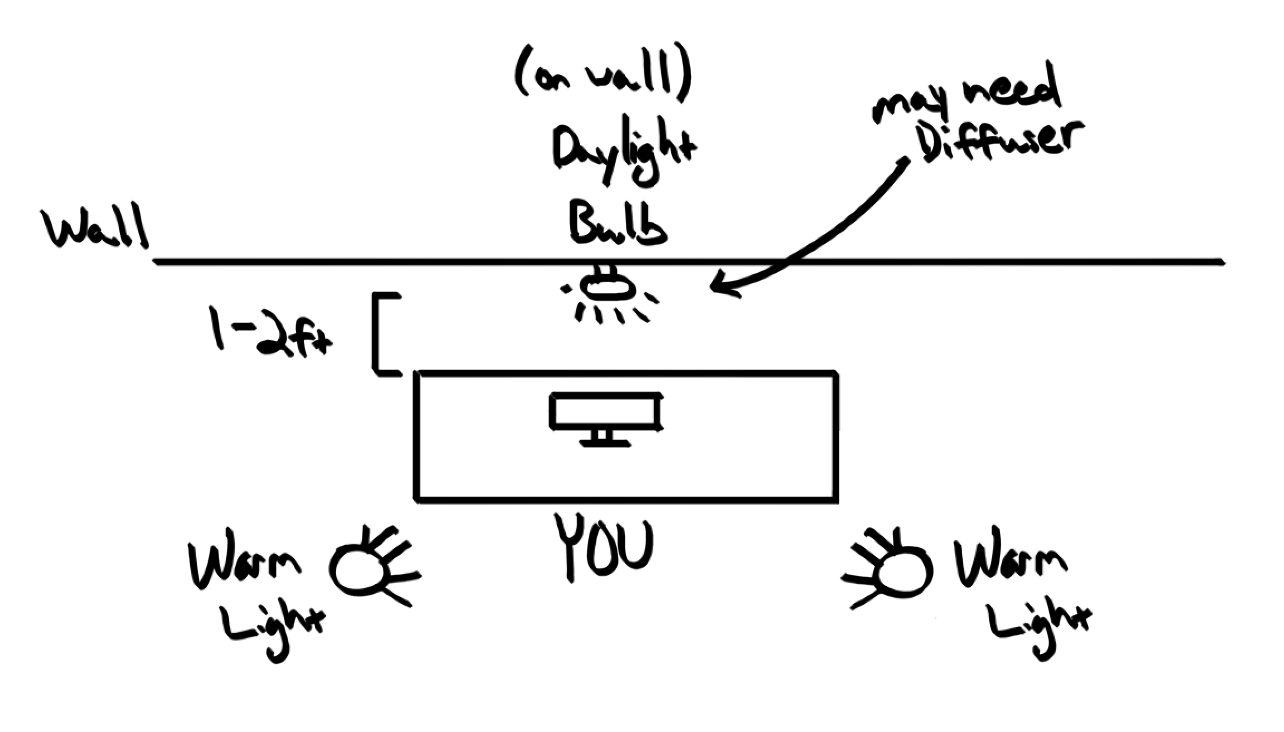 (on wall)
Daylight
Bulb
may need
Diffuser
Wall
1-2ft
YOU
Warm
Light
Warm
Light